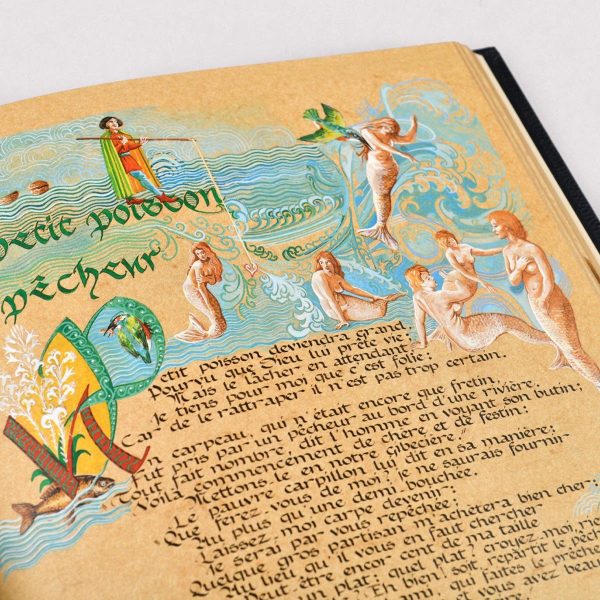 petit poisson
pêcheur
Petit poisson deviendra grand
Pourvu que Dieu lui prête vie;
Mais le lâcher en attendant,
Je tiens pour moi que c'est folie;
Car de le rattraper il n'est pas trop certain.
Un carpeau, qui n'était encore que fretin,
Fut pris par un pêcheur au bord d'une rivière.
Tout fait nombre, dit l'homme en voyant son butin;
Voilà commencement de chère et de festin:
Mettons le en notre gibecière."
Le pauvre carpillon lui dit en sa manière;
"Que ferez vous de moi? je ne saurais fournir
Au plus qu'une demi bouchée.
Laissez moi carpe devenir;
Je serai par vous repêchée;
Quelque gros partisan m'achètera bien cher;
Au lieu qu'il vous en faut chercher
Peut être encor cent de ma taille
un plat; quel plat? croyez moi, rie
Eh bien! soit, repartit le pêch
ami, qui faites le prêche
et vous avez beau